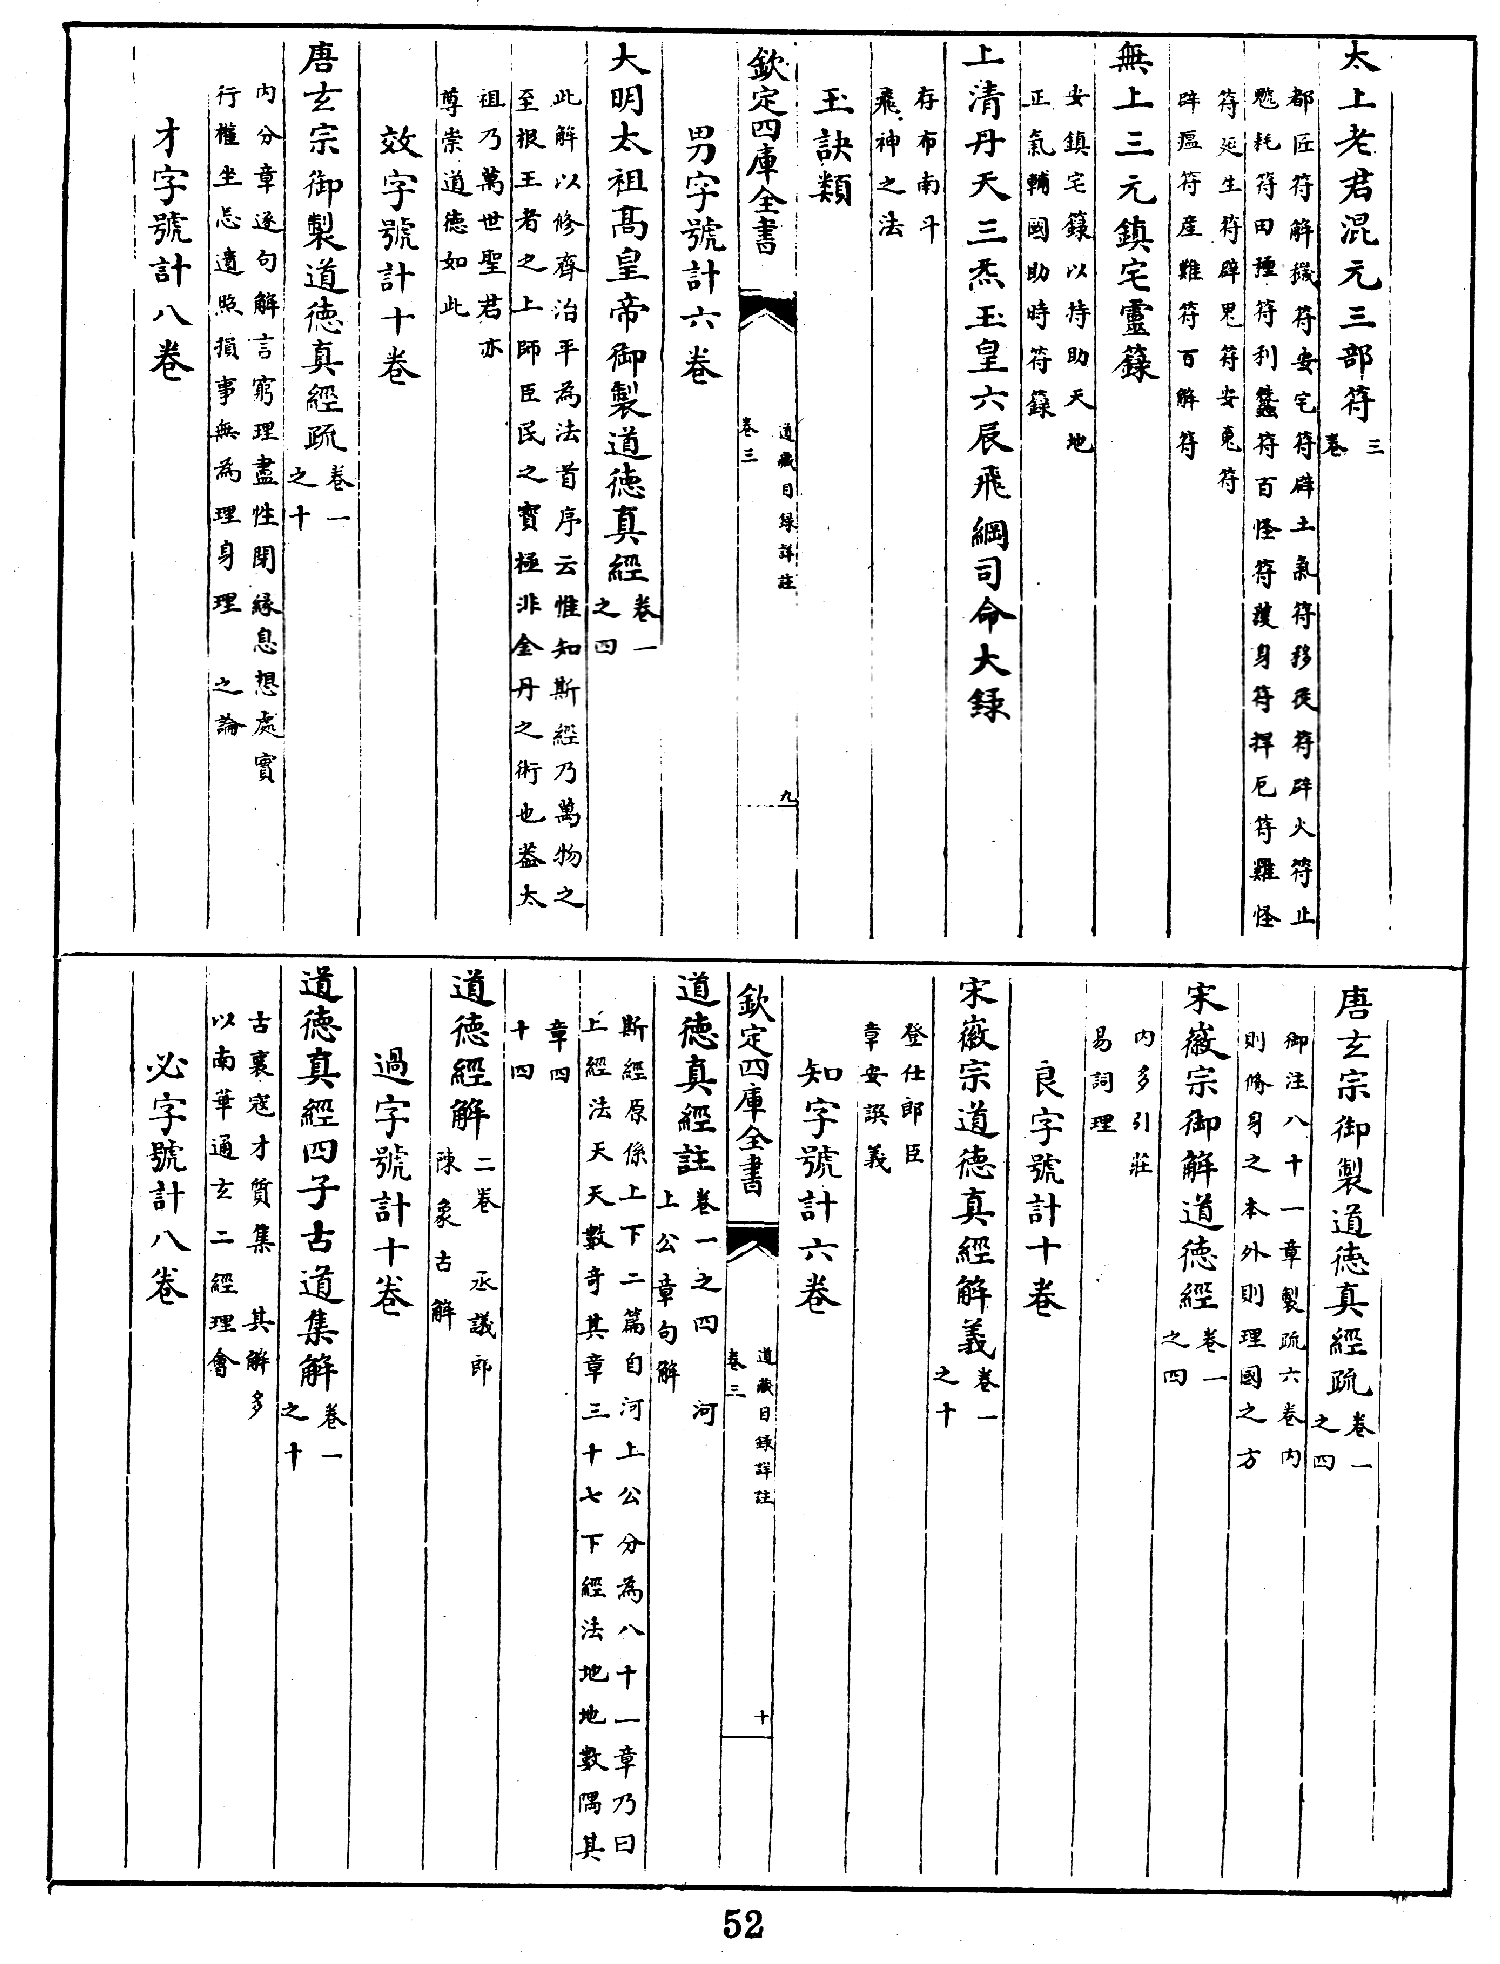 太上老君混元三部符三卷
都匠符解穢符安宅符辟土氣符移徙符辟火符止
耗符田種符利蠶符百怪符護身符捍厄符雞怪
符延生符辟鬼符安竃符
辟瘟符産難符百解符
無上三元鎮宅靈籙
安鎮宅籙以持助天地
正氣輔國助時符籙
上清丹天三炁玉皇六辰飛綱司命大錄
存布南斗
飛神之法
玉訣類
欽定四庫全書
道藏目錄詳註
卷三
九
男字號計六卷
大明太祖髙皇帝御製道徳真經卷一之四
此解以修齊治平為法首序云惟知斯經乃萬物之
至根王者之上師臣民之寳極非金丹之術也葢太
祖乃萬世聖君亦
尊崇道徳如此
效字號計十卷
唐玄宗御製道徳真經疏卷一之十
内分章逐句解言窮理盡性閉緣息想處實
行權坐忘遺照損事無為理身理 之論
才字號計八卷
唐玄宗御製道徳真經疏卷一之四
御注八十一章製疏六卷内
則修身之本外則理國之方
宋徽宗御解道徳經卷一之四
内多引莊
易詞理
良字號計十卷
宋徽宗道徳真經解義卷一之十
登仕郎臣
章安譔義
知字號計六卷
欽定四庫全書
道藏目錄詳註
卷三
十
道徳真經註卷一之四 河上公章句解
斯經原係上下二篇自河上公分為八十一章乃曰
上經法天天數奇其章三十七下經法地地數隅其
章四
十四
道徳經解二卷 丞議郎陳象古解
過字號計十卷
道徳真經四子古道集解卷一之十
古襄冦才質集 其解多
以南華通玄二經理會
必字號計八卷